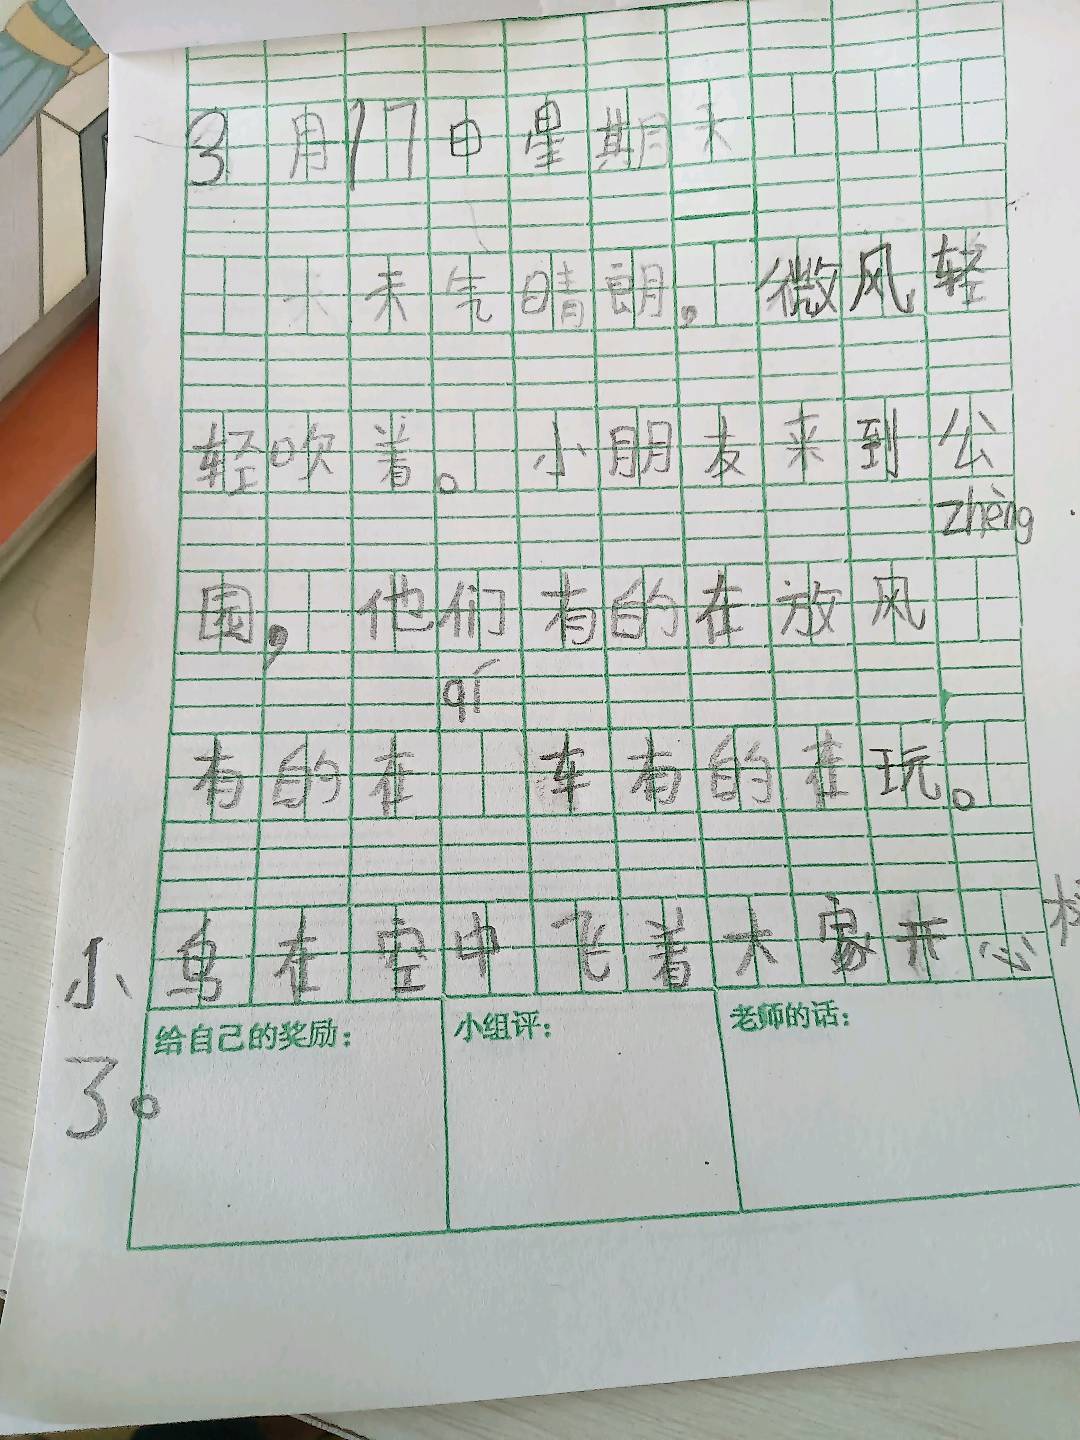 3月17日星期天
天气晴朗,微风轻
轻吹着。小朋友来到公
zhèng
园,他们有的在放风
qí
有的在 车有的在玩。
小鸟在空中飞着大家开心
了。
给自己的奖励:
小组评:
老师的话: